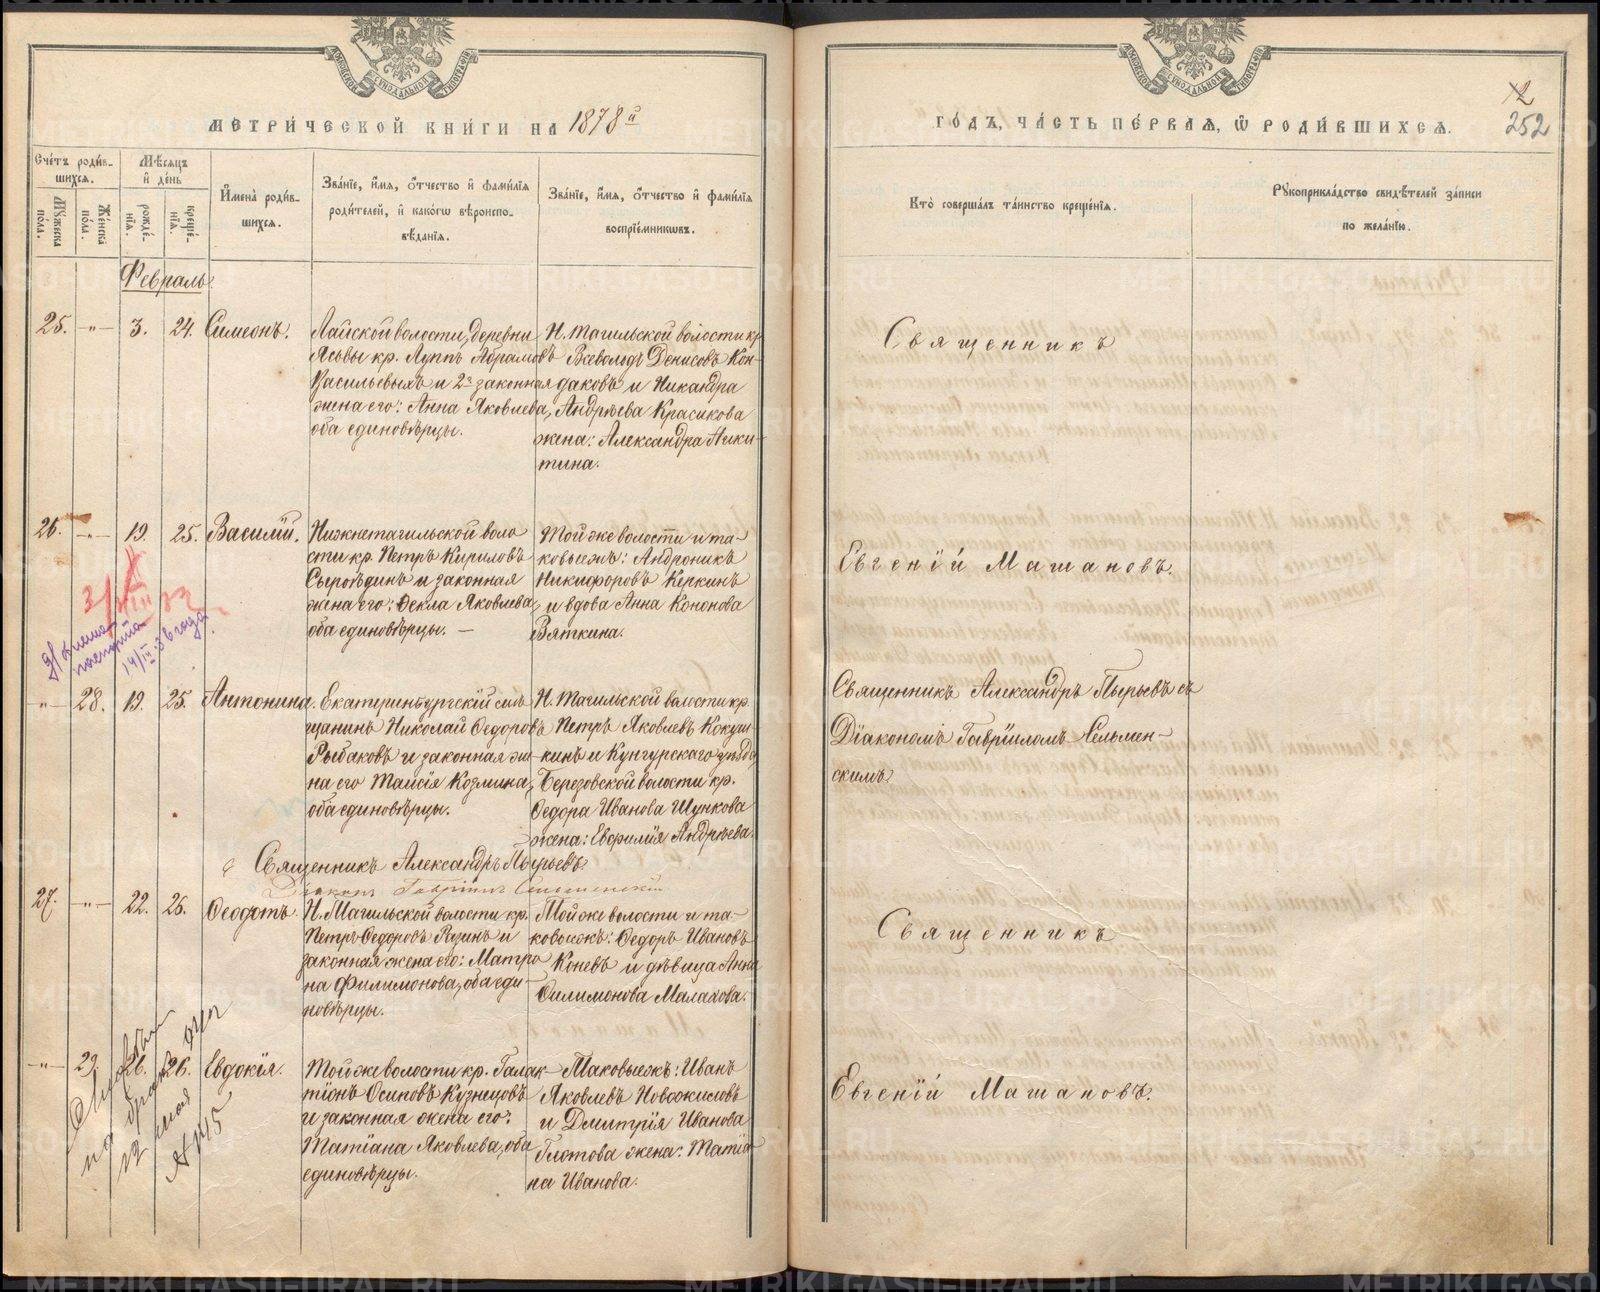 МЕТРИ́ЧЕСКОЙ КНИ́ГИ НА 1878й
ГО́ДЪ, ЧА́СТЬ ПЕ́РВАЯ, Ѽ РОДИ́ВШИХСЯ.
12
252
Сче́тъ роди́вшихся.
Му́жеска по́ла.
Же́нска по́ла.
Мѣ́сяцъ и҆ де́нь
рожде́нїя.
креще́нїя.
И҆мена̀ роди́вшихся.
Зва́нїе, и҆́мя, ѻ҆́тчество и҆ фами́лїя
роди́телей, и҆ како́гѡ вѣроиспо-
вѣ́данїя.
Зва́нїе, и҆́мя, ѻ҆́тчество и҆ фами́лїя
воспрїе́мникѡвъ.
Кто̀ соверша́лъ та́инство креще́нїя.
Рꙋкоприкла́дство свидѣ́телей за́писи
по жела́нїю.
Февраль.
25. -"- 3. 24. Симеонъ.
Лайской волости, деревни
Ясьвы кр. Луппъ Абрамовъ
Васильевыхъ и 2я законная
жена его: Анна Яковлева,
оба единовѣрцы.
Н. Тагильской волости кр.
Всеволодъ Денисовъ Кон-
даковъ и Никандра
Андрѣева Красикова
жена: Александра Ники-
тина.
Священникъ
26. -"- 19. 25. Василій.
Нижнетагильской воло
сти кр. Петръ Кириловъ
Сыроѣдинъ и законная
жена его: Ѳекла Яковлева,
оба единовѣрцы. —
Той же волости и та-
ковыежъ: Андроникъ
Никифоровъ Керкинъ
и вдова Анна Кононова
Вяткина.
Евгеній Машановъ.
паспорта
14/III 36 года
-"- 28. 19. 25. Антонина.
Екатеринбургскій мѣ
щанинъ Николай Ѳедоровъ
Рыбаковъ и законная же-
на его Таисія Козмина,
оба единовѣрцы.
Н. Тагильской волости кр.
Петръ Яковлевъ Кокуш
кинъ и Кунгурскаго уѣзда
Березовской волости кр.
Ѳедора Иванова Шункова
жена: Евфимія Андрѣева.
Священникъ Александръ Пырьевъ съ
Діакономъ Гавріиломъ Сельмен-
скимъ
Священникъ Александръ Пырьевъ
Діаконъ Гавріилъ Сельменскій
27. -"- 22. 26. Ѳеодотъ.
Н. Тагильской волости кр.
Петръ Ѳедоровъ Разинъ и
законная жена его: Матро
на Филимонова, оба еди-
новѣрцы.
Той же волости и та-
ковыежъ: Ѳедоръ Ивановъ
Коневъ и дѣвица Анна
Филимонова Малахова.
Священникъ
-"- 29. 26. 26. Евдокія.
Той же волости кр. Галак
тіонъ Осиповъ Кузнецовъ
и законная жена его:
Татіана Яковлева, оба
единовѣрцы.
Таковыежъ: Иванъ
Яковлевъ Новожиловъ
и Дмитрія Иванова
Глотова жена: Татіа
на Иванова.
Евгеній Машановъ.
на бракъ
12 мая
№ 15